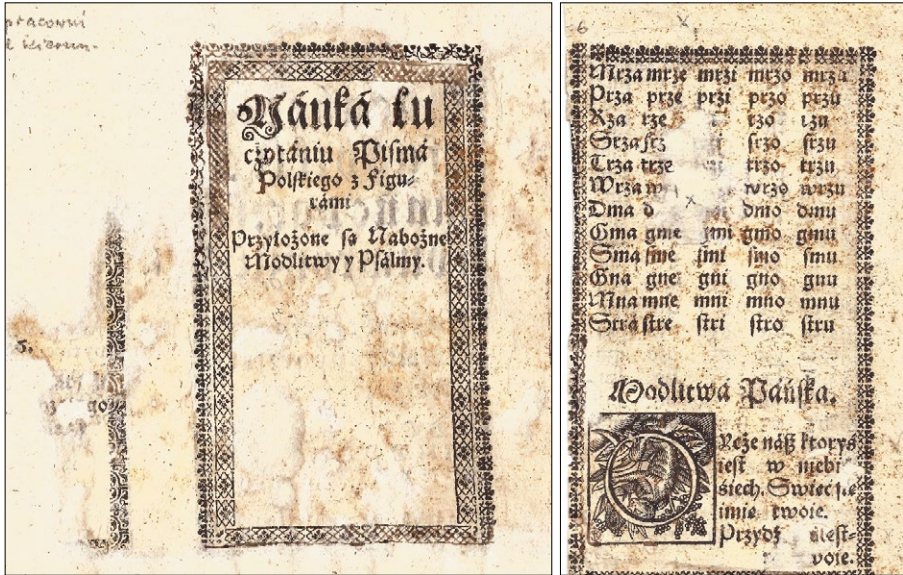 Náuká ku
czytániu Pismá
Polskiego z Figu-
rámi
Przyłożone są Nabożne
Modlitwy y Psálmy.
5.
6
Mrza mrze mrzi mrzo mrzu
Prza prze przi przo przu
Rza rze rzo rzu
Srza srz srzo srzu
Trza trze trzo trzu
Wrza w wrzo wrzu
Dma d dmo dmu
Gma gme gmi gmo gmu
Sma sme smi smo smu
Gna gne gni gno gnu
Mna mne mni mno mnu
Strá stre stri stro stru
Modlitwá Páńska.
Ycże náß ktorys
iest w niebi
siech. Swięć się
imię twoie.
Przydź
woie.